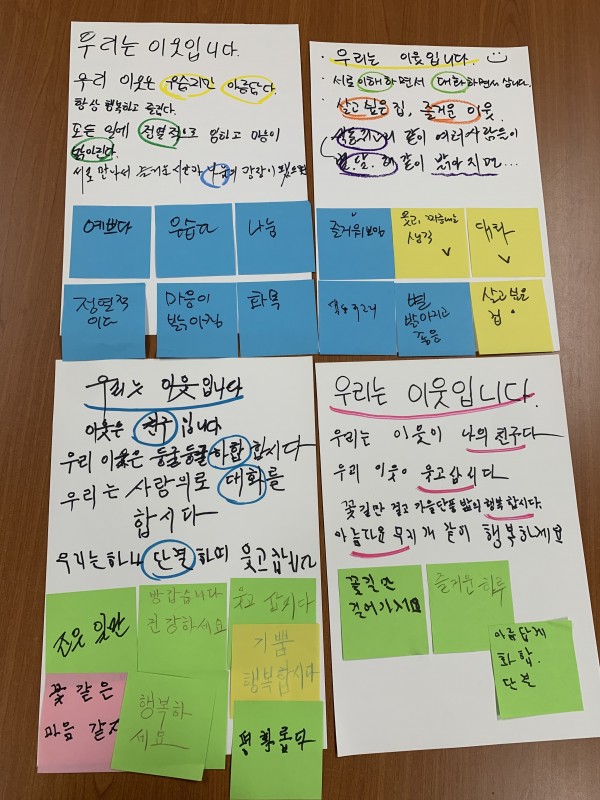 우리는 이웃입니다.
우리 이웃은 우습지만 아름답다.
항상 행복하고 즐겁다.
모든 일에 정열적으로 임하고 마음이
밝아진다.
서로 만나서 즐거운시간과 나눔의
예쁘다
웃습다
나눔
정열적
이다
마음이
밝아짐
화목
우리는 이웃입니다.
서로 이해하면서 대화하면서 삽니다.
살고싶은 집, 즐거운 이웃
같이 여러사람들이
별, 달, 해 같이 밝아지면...
즐거워보임
생각
대화
별
밝아지고
좋음
살고싶은
집
우리는 이웃입니다
이웃은 친구입니다
우리 이웃은 둥글둥글 화합합시다
우리는 사랑의로 대화를
합시다
우리는하나 단결하며 웃고삽니다
좋은 일만
방갑습니다
건강하세요
웃고 삽시다
기쁨
행복합시다
꽃 같은
마음 같자
행복하
세요
평화롭다
우리는 이웃입니다.
우리는 이웃이 나의친구다
우리 이웃 웃고삽시다
꽃길만 걷고 가을단풍 밟의 행복합시다.
아름다운 무지개 같이 행복하세요
꽃길만
걸어가세요
즐거운 하루
아름답게
화합.
단결